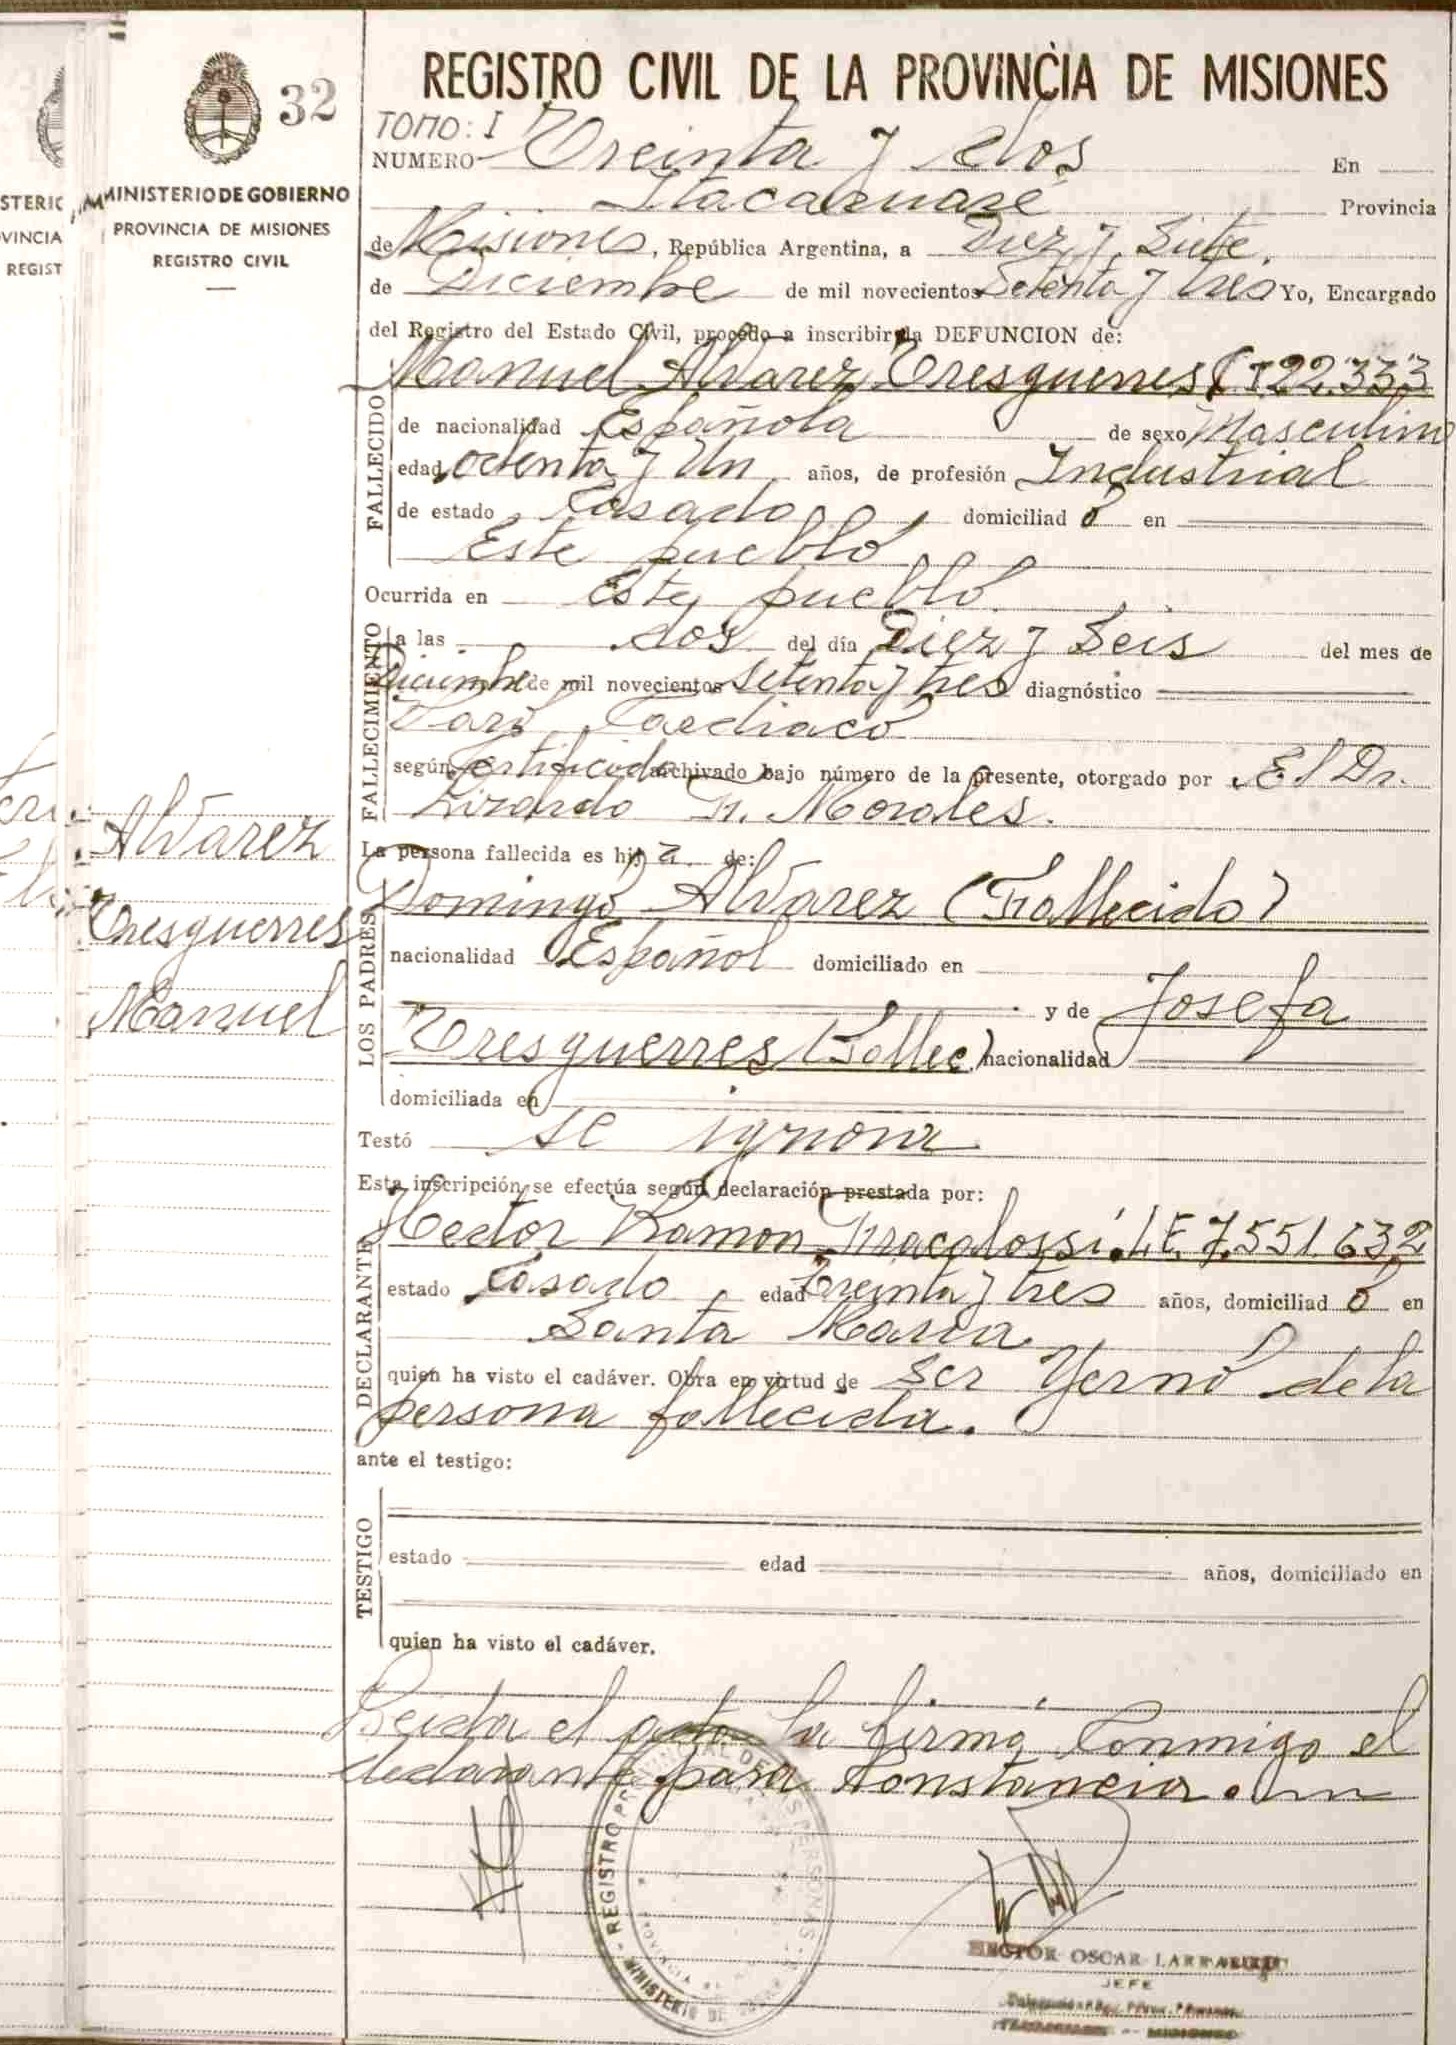 REGISTRO CIVIL DE LA PROVINCIA DE MISIONES
32
MINISTERIO DE GOBIERNO
PROVINCIA DE MISIONES
REGISTRO CIVIL
STERIO
VINCIA
REGIST
TOMO: I
NUMERO Treinta y dos En
Itacaruaré Provincia
de Misiones, República Argentina, a Diez y Siete.
de Diciembre de mil novecientos Setenta y tres Yo, Encargado
del Registro del Estado Civil, procedo a inscribir la DEFUNCION de:
FALLECIDO
Manuel Alvarez Tresguerres 122.333
de nacionalidad Española de sexo Masculino
edad, octenta y Un años, de profesión Industrial
de estado Casado domiciliad o en
Este pueblo
Ocurrida en Este pueblo.
FALLECIMIENTO
a las dos del día Diez y Seis del mes de
Diciembre de mil novecientos setenta y tres diagnóstico
Paro Cardiaco
según certificado archivado bajo número de la presente, otorgado por El Dr.
Lizardo Fr. Morales.
Alvarez
Tresguerres
Manuel
La persona fallecida es hij de:
LOS PADRES
Domingo Alvarez (Fallecido)
nacionalidad Español domiciliado en
y de Josefa
Tresguerres (Fallec.) nacionalidad
domiciliada en
Testó se ignora
Esta inscripción se efectúa según declaración prestada por:
DECLARANTE
Hector Ramon Fracalossi. L.E. 7.551.632
estado Casado edad Treinta y tres años, domiciliad o en
Santa Maria
quien ha visto el cadáver. Obra en virtud de ser Yerno de la
persona fallecida.
ante el testigo:
TESTIGO
estado edad años, domiciliado en
quien ha visto el cadáver.
Leida el acta la firma Conmigo el
declarante para Constancia.
REGISTRO PROVINCIAL DE LAS PERSONAS
MINISTERIO DE
PROVINCIA
HECTOR OSCAR
JEFE
MISIONES